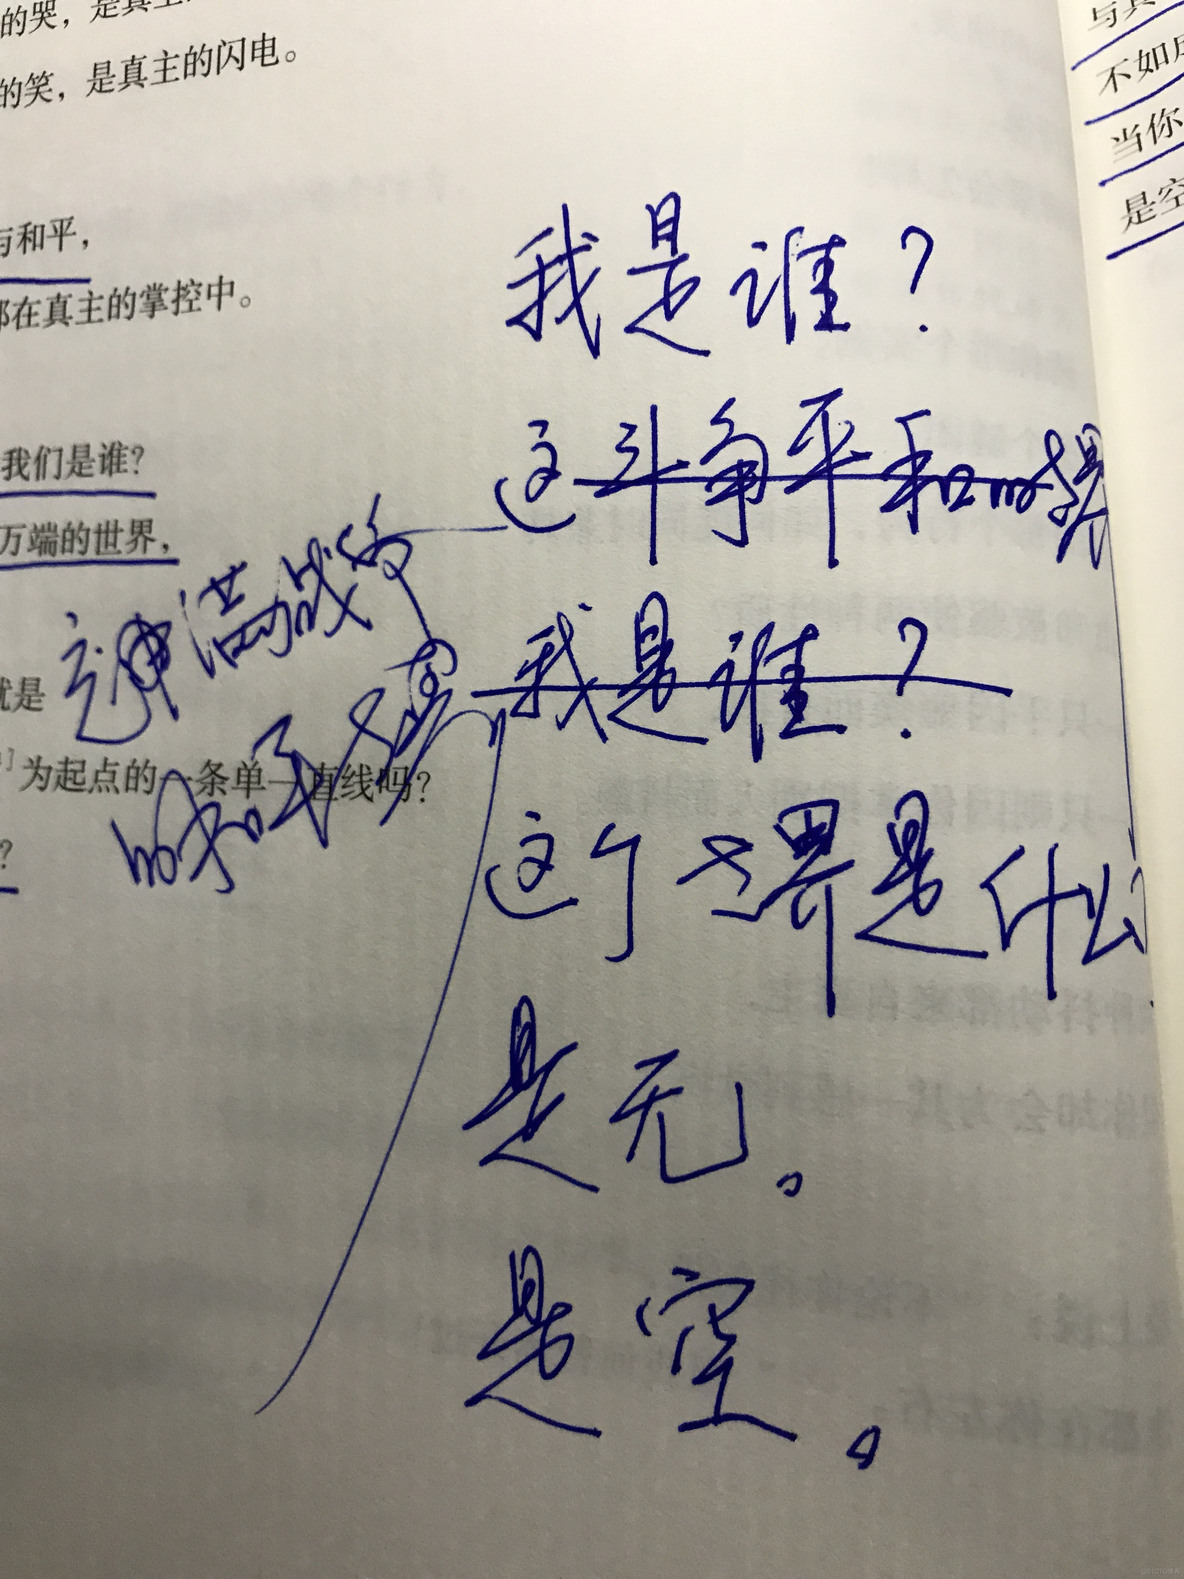 的哭，是真主
的笑，是真主的闪电。
与和平，
都在真主的掌控中。
我们是谁？
万端的世界，
就是
为起点的一条单一直线吗？
？
我是谁？
这斗争平和的
我是谁？
这个世界是什么？
是无。
是空。
这神满战
的和平
与其
不如
当你
是空